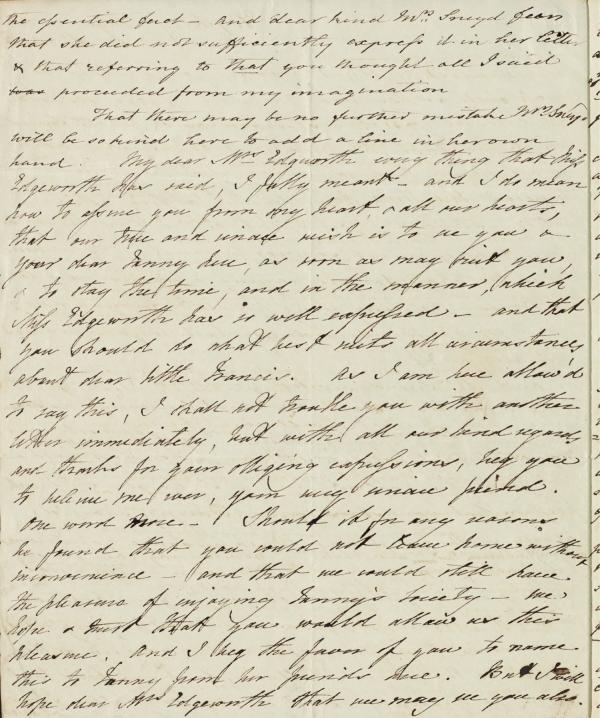 the essential fact – and dear kind Mrs. Sneyd fears
that she did not sufficiently express it in her letter
& that referring to that you thought all I said
was proceeded from my imagination
That there may be no further mistake Mrs. Sneyd
will be so kind here to add a line in her own
hand. My dear Mrs Edgworth every thing that Miss
Edgeworth has said, I fully meant – and I do mean
now to assure you from my heart, & all our hearts,
that our true and sincere wish is to see you &
your dear Fanny here, as soon as may suit you
& to stay the time, and in the manner, which
Miss Edgeworth has so well expressed – and that
you should do what best suits all circumstances
about dear little Francis. As I am here allow'd
to say this, I shall not trouble you with another
letter immediately, but with all our kind regards
and thanks for your obliging expressions, beg you
to believe me ever, your very sincere friend.
One word more – Should it for any reasons
be found that you could not leave home without
inconvenience – and that we could still have
the pleasure of enjoying Fanny's society – we
hope & trust that you would allow us this
pleasure. And I beg the favor of you to name
this to Fanny from her friends here. But I still
hope dear Mrs Edgeworth that we may see you also.